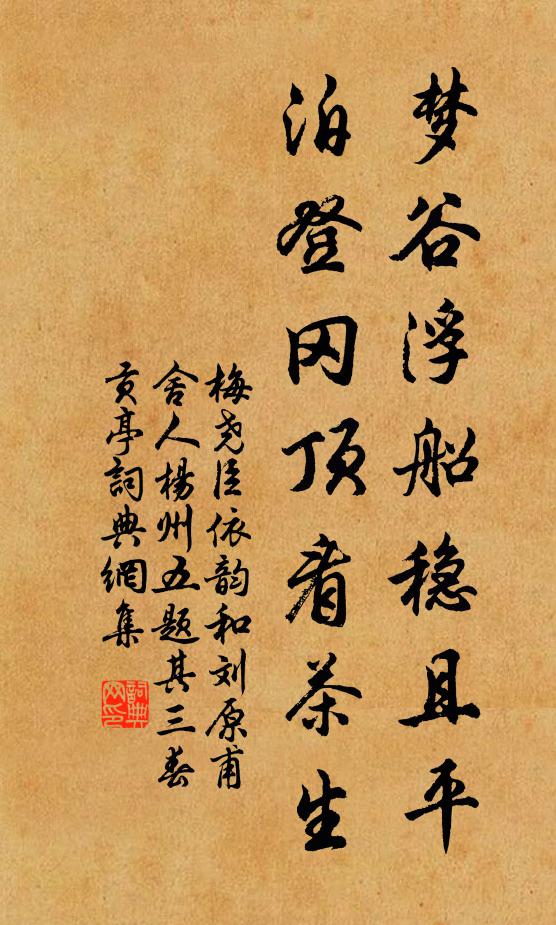 梦谷浮船稳且平
泊登冈顶看茶生
梅尧臣依韵和刘原甫
舍人杨州五题其三春
贡亭詞典網集
詞典
网印